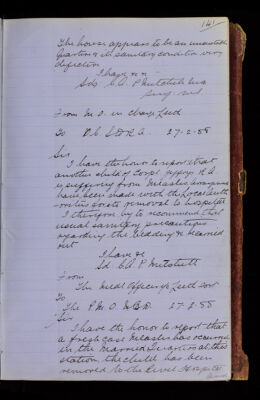 141
The house appears to be an unsuitable
quarters & its sanitary condition very
defective
I have &c &c
Sd/ C.A. P. Mitchell
Surg.
From M.O. in charge
To O.C. S.D R.A. 27-2-88
Sir
I have the honor to report that
another child of Corpl Jeffreys R A
is suffering from Measles arrangements
have been made with the Local
for its removal to hospital
I therefore beg to recommend that
usual sanitary precautions
regarding the bedding &c be carried
out
I have &c
Sd C.A. P. Mitchell
From
The Medl Officer i/c
To
The P.M.O. 27-2-88
Sir
I have the honor to report that
a fresh case Measles has occurred
in the Married Quarters at this
station, the child has been
removed to the Civil Hospital